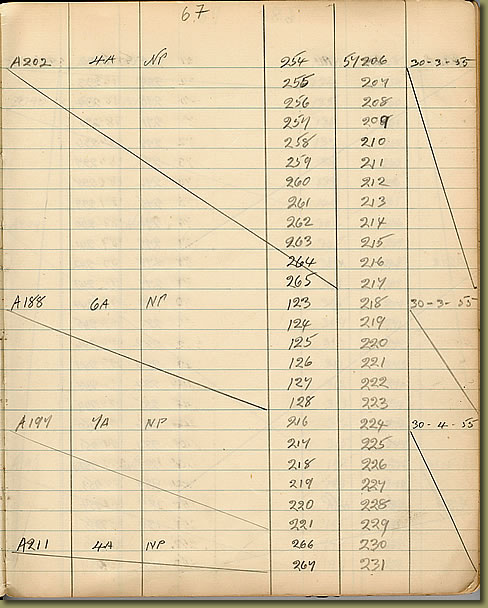 67
A202 4A NP 254 57206 30-3-55
255 207
256 208
257 209
258 210
259 211
260 212
261 213
262 214
263 215
264 216
265 217
A188 6A NP 123 218 30-3-55
124 219
125 220
126 221
127 222
128 223
A197 7A NP 216 224 30-4-55
217 225
218 226
219 227
220 228
221 229
A211 4A NP 266 230
267 231